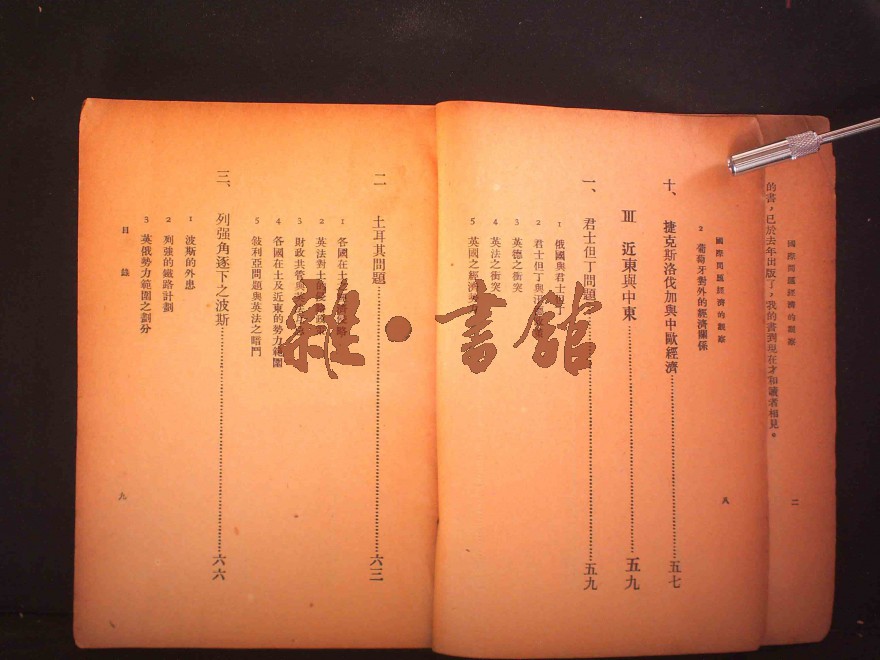 國際問題經濟的觀察
二
的書，已於去年出版了，我的書到現在才和讀者相見。
國際問題經濟的觀察
八
2 葡萄牙對外的經濟關係
十、捷克斯洛伐加與中歐經濟……五七
III 近東與中東……五九
一、君士但丁問題……五九
1 俄國與君士但丁
2 君士但丁與
3 英德之衝突
4 英法之衝突
5 英國之經濟
二 土耳其問題……六三
1 各國在土
2 英法對土
3 財政共管與
4 各國在土及近東的勢力範圍
5 敍利亞問題與英法之暗鬥
三、列强角逐下之波斯……六六
1 波斯的外患
2 列强的鐵路計劃
3 英俄勢力範圍之劃分
目錄
九
雜·書館